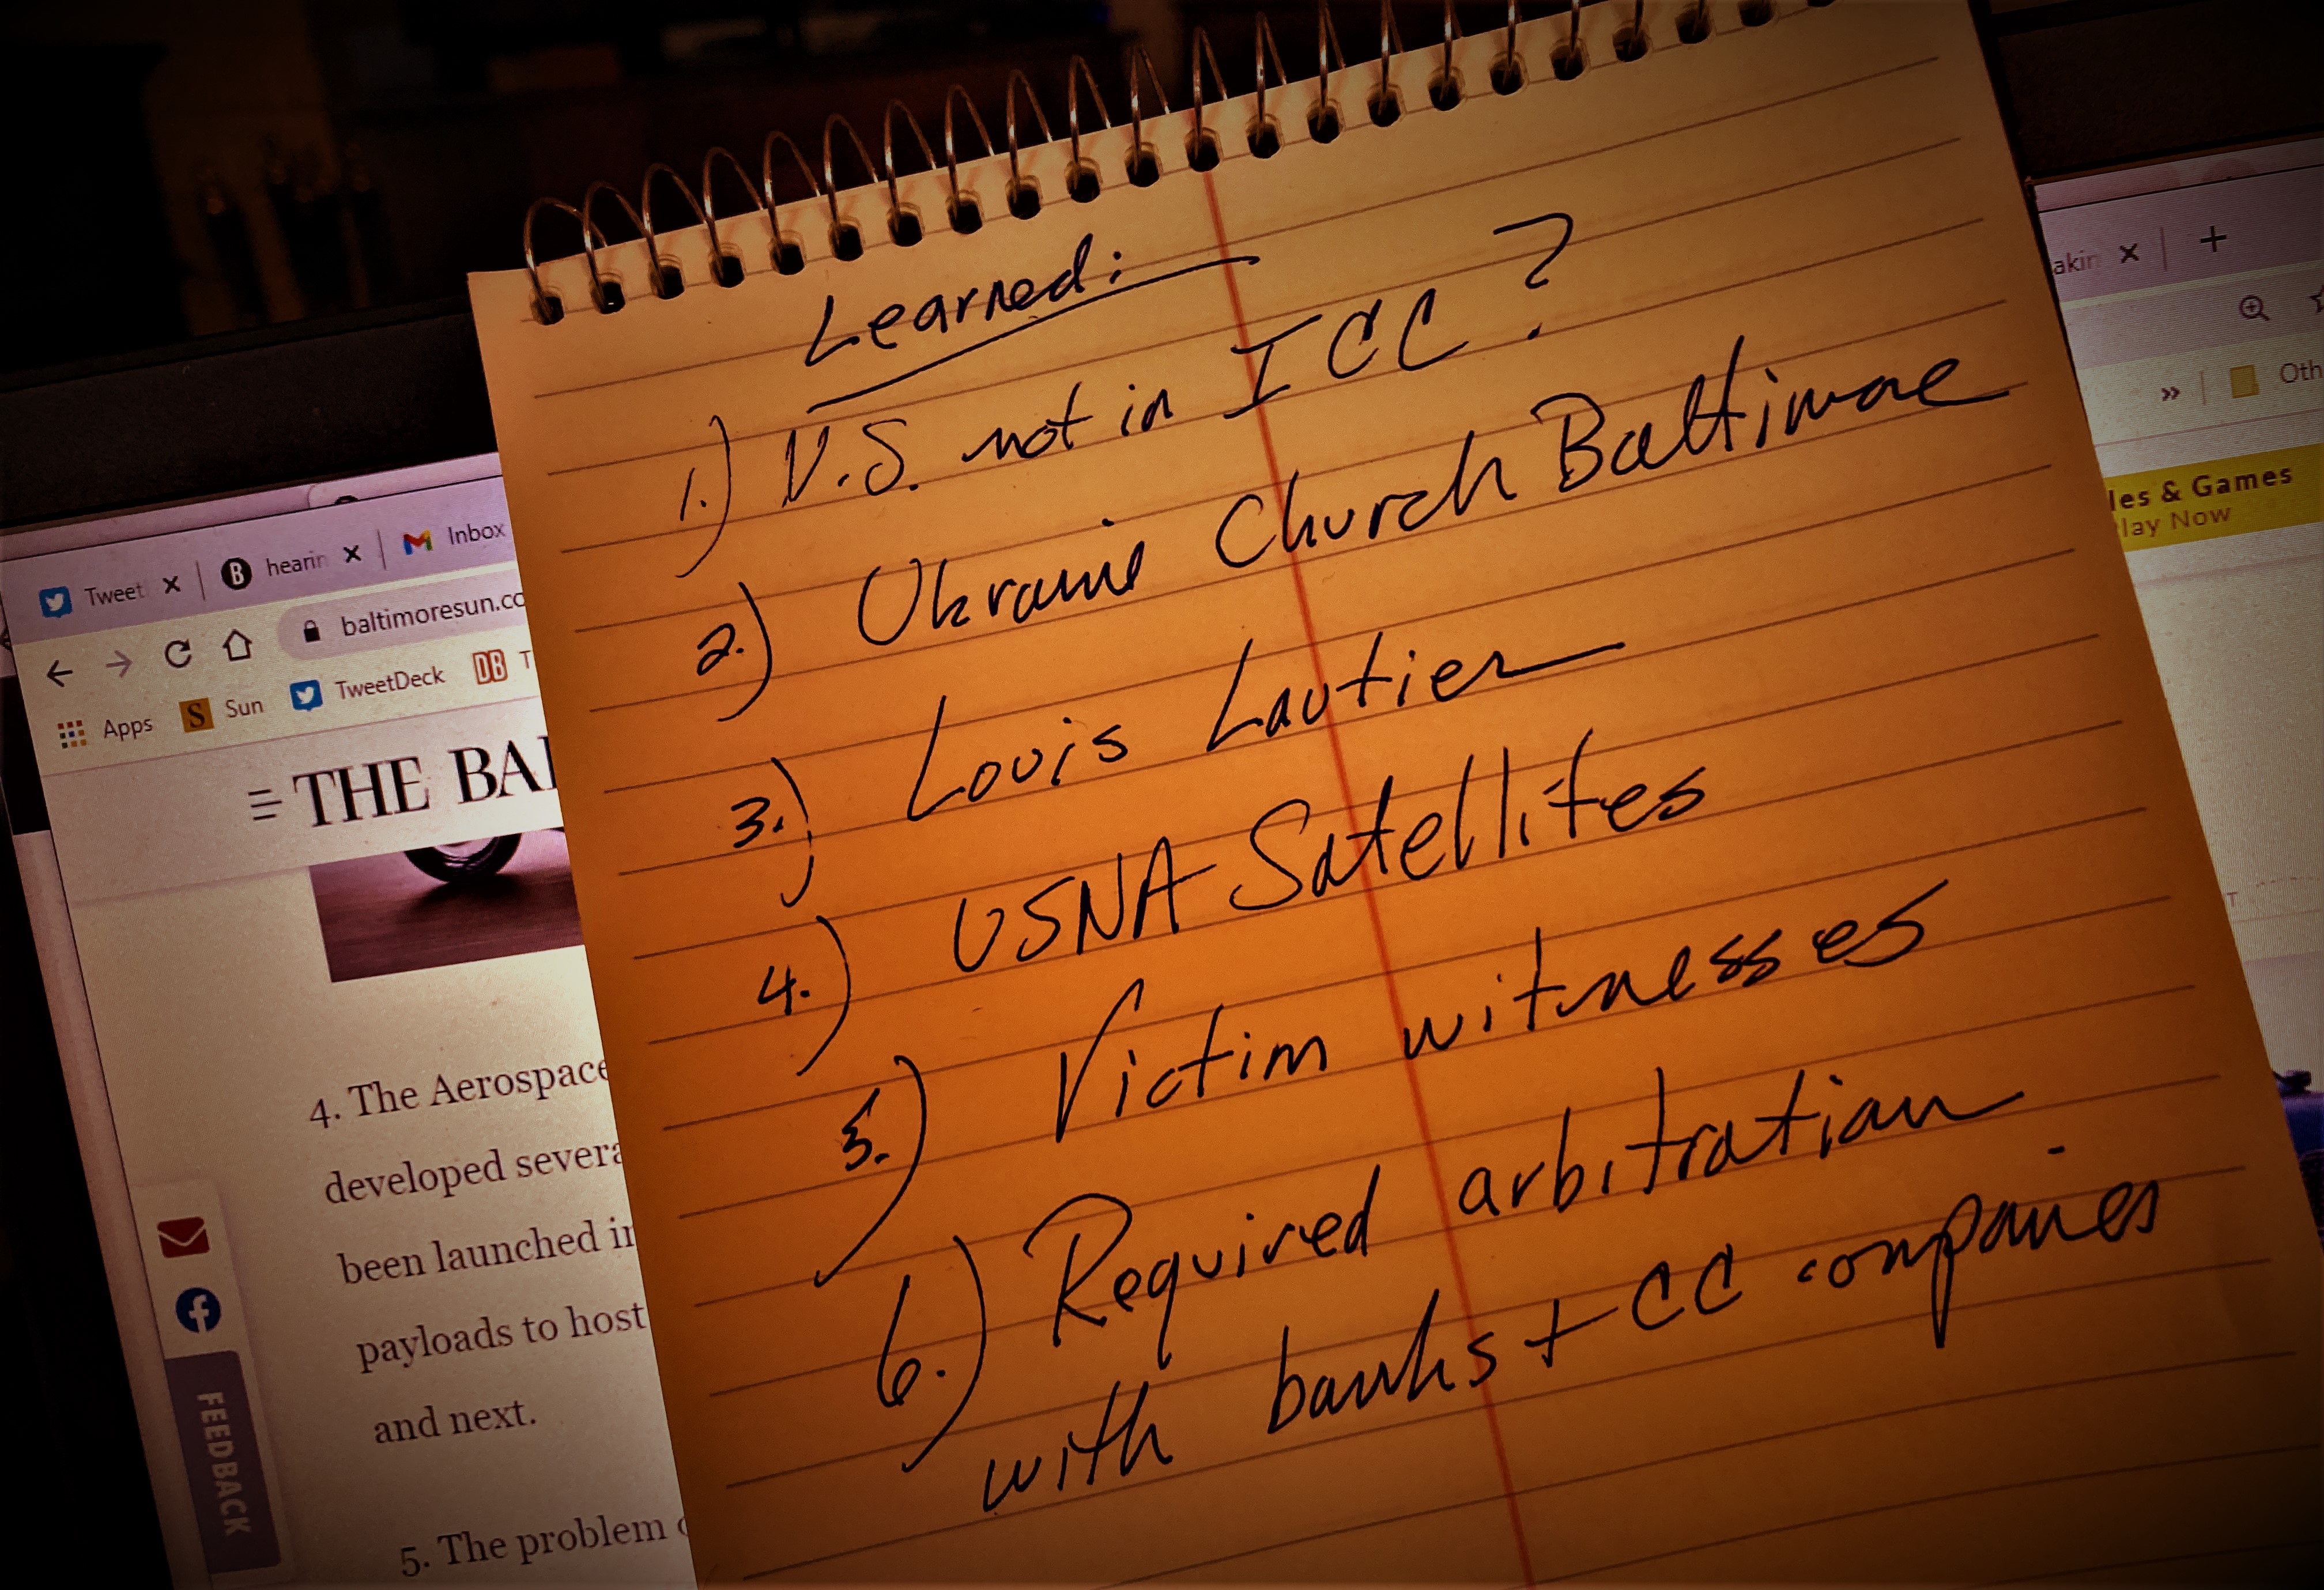 Learned:
1.) U.S. not in ICC?
2.) Ukraine Church Baltimore
3.) Louis Lautier
4.) USNA Satellites
5.) Victim witnesses
6.) Required arbitration
with banks + CC companies
Tweet
hearin
Inbox
baltimoresun.co
Apps
Sun
TweetDeck
DB
T
THE BAL
4. The Aerospace
developed severa
been launched in
payloads to host
and next.
5. The problem
FEEDBACK
akin
Oth
les & Games
lay Now